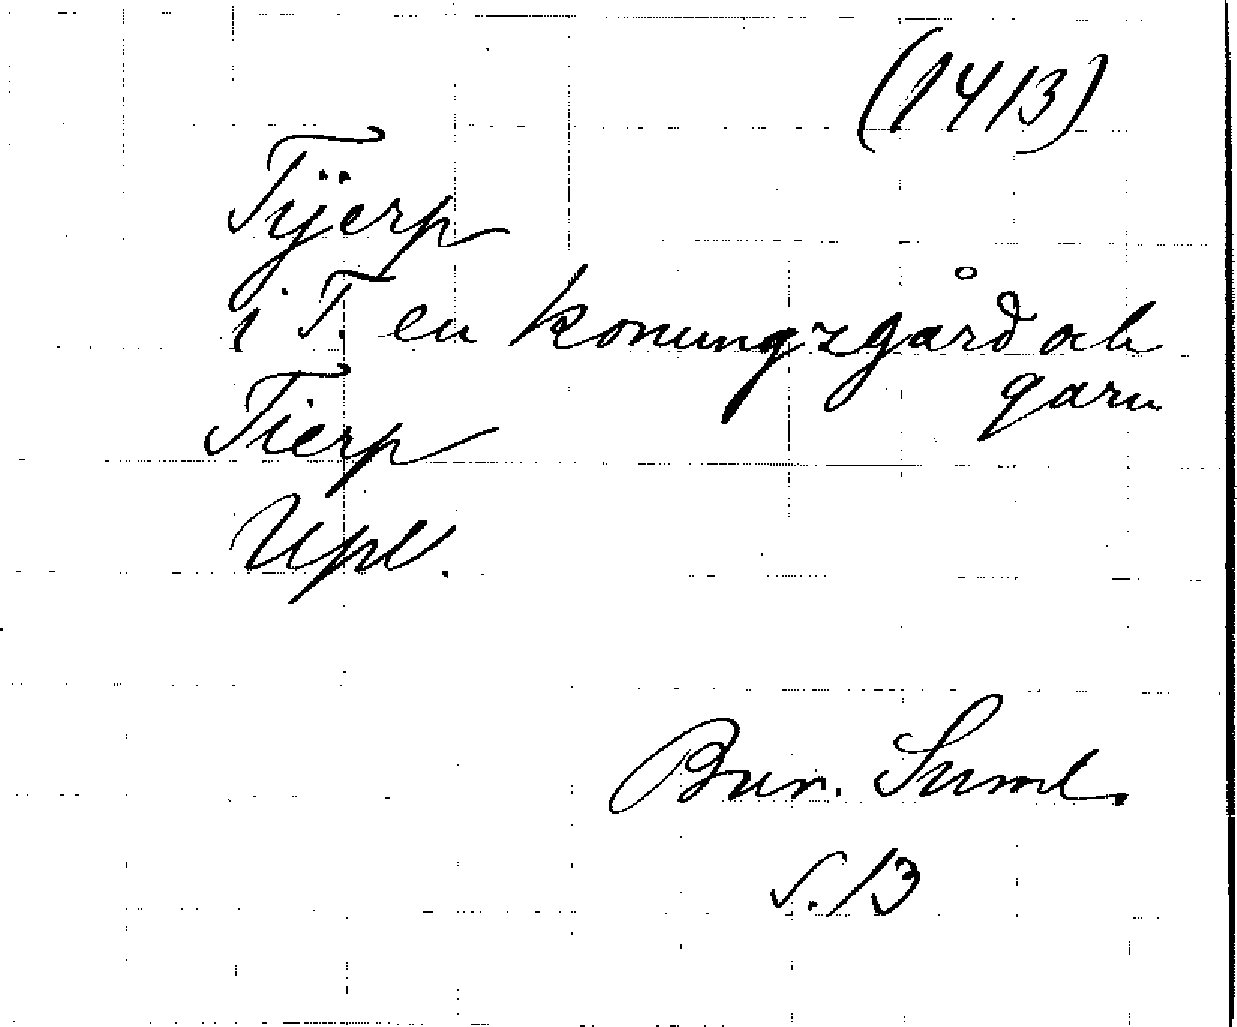 (1413)
Tÿerp
i T. en konungzgård och
qarn
Tierp
Upl.
Bur. Suml.
s. 13